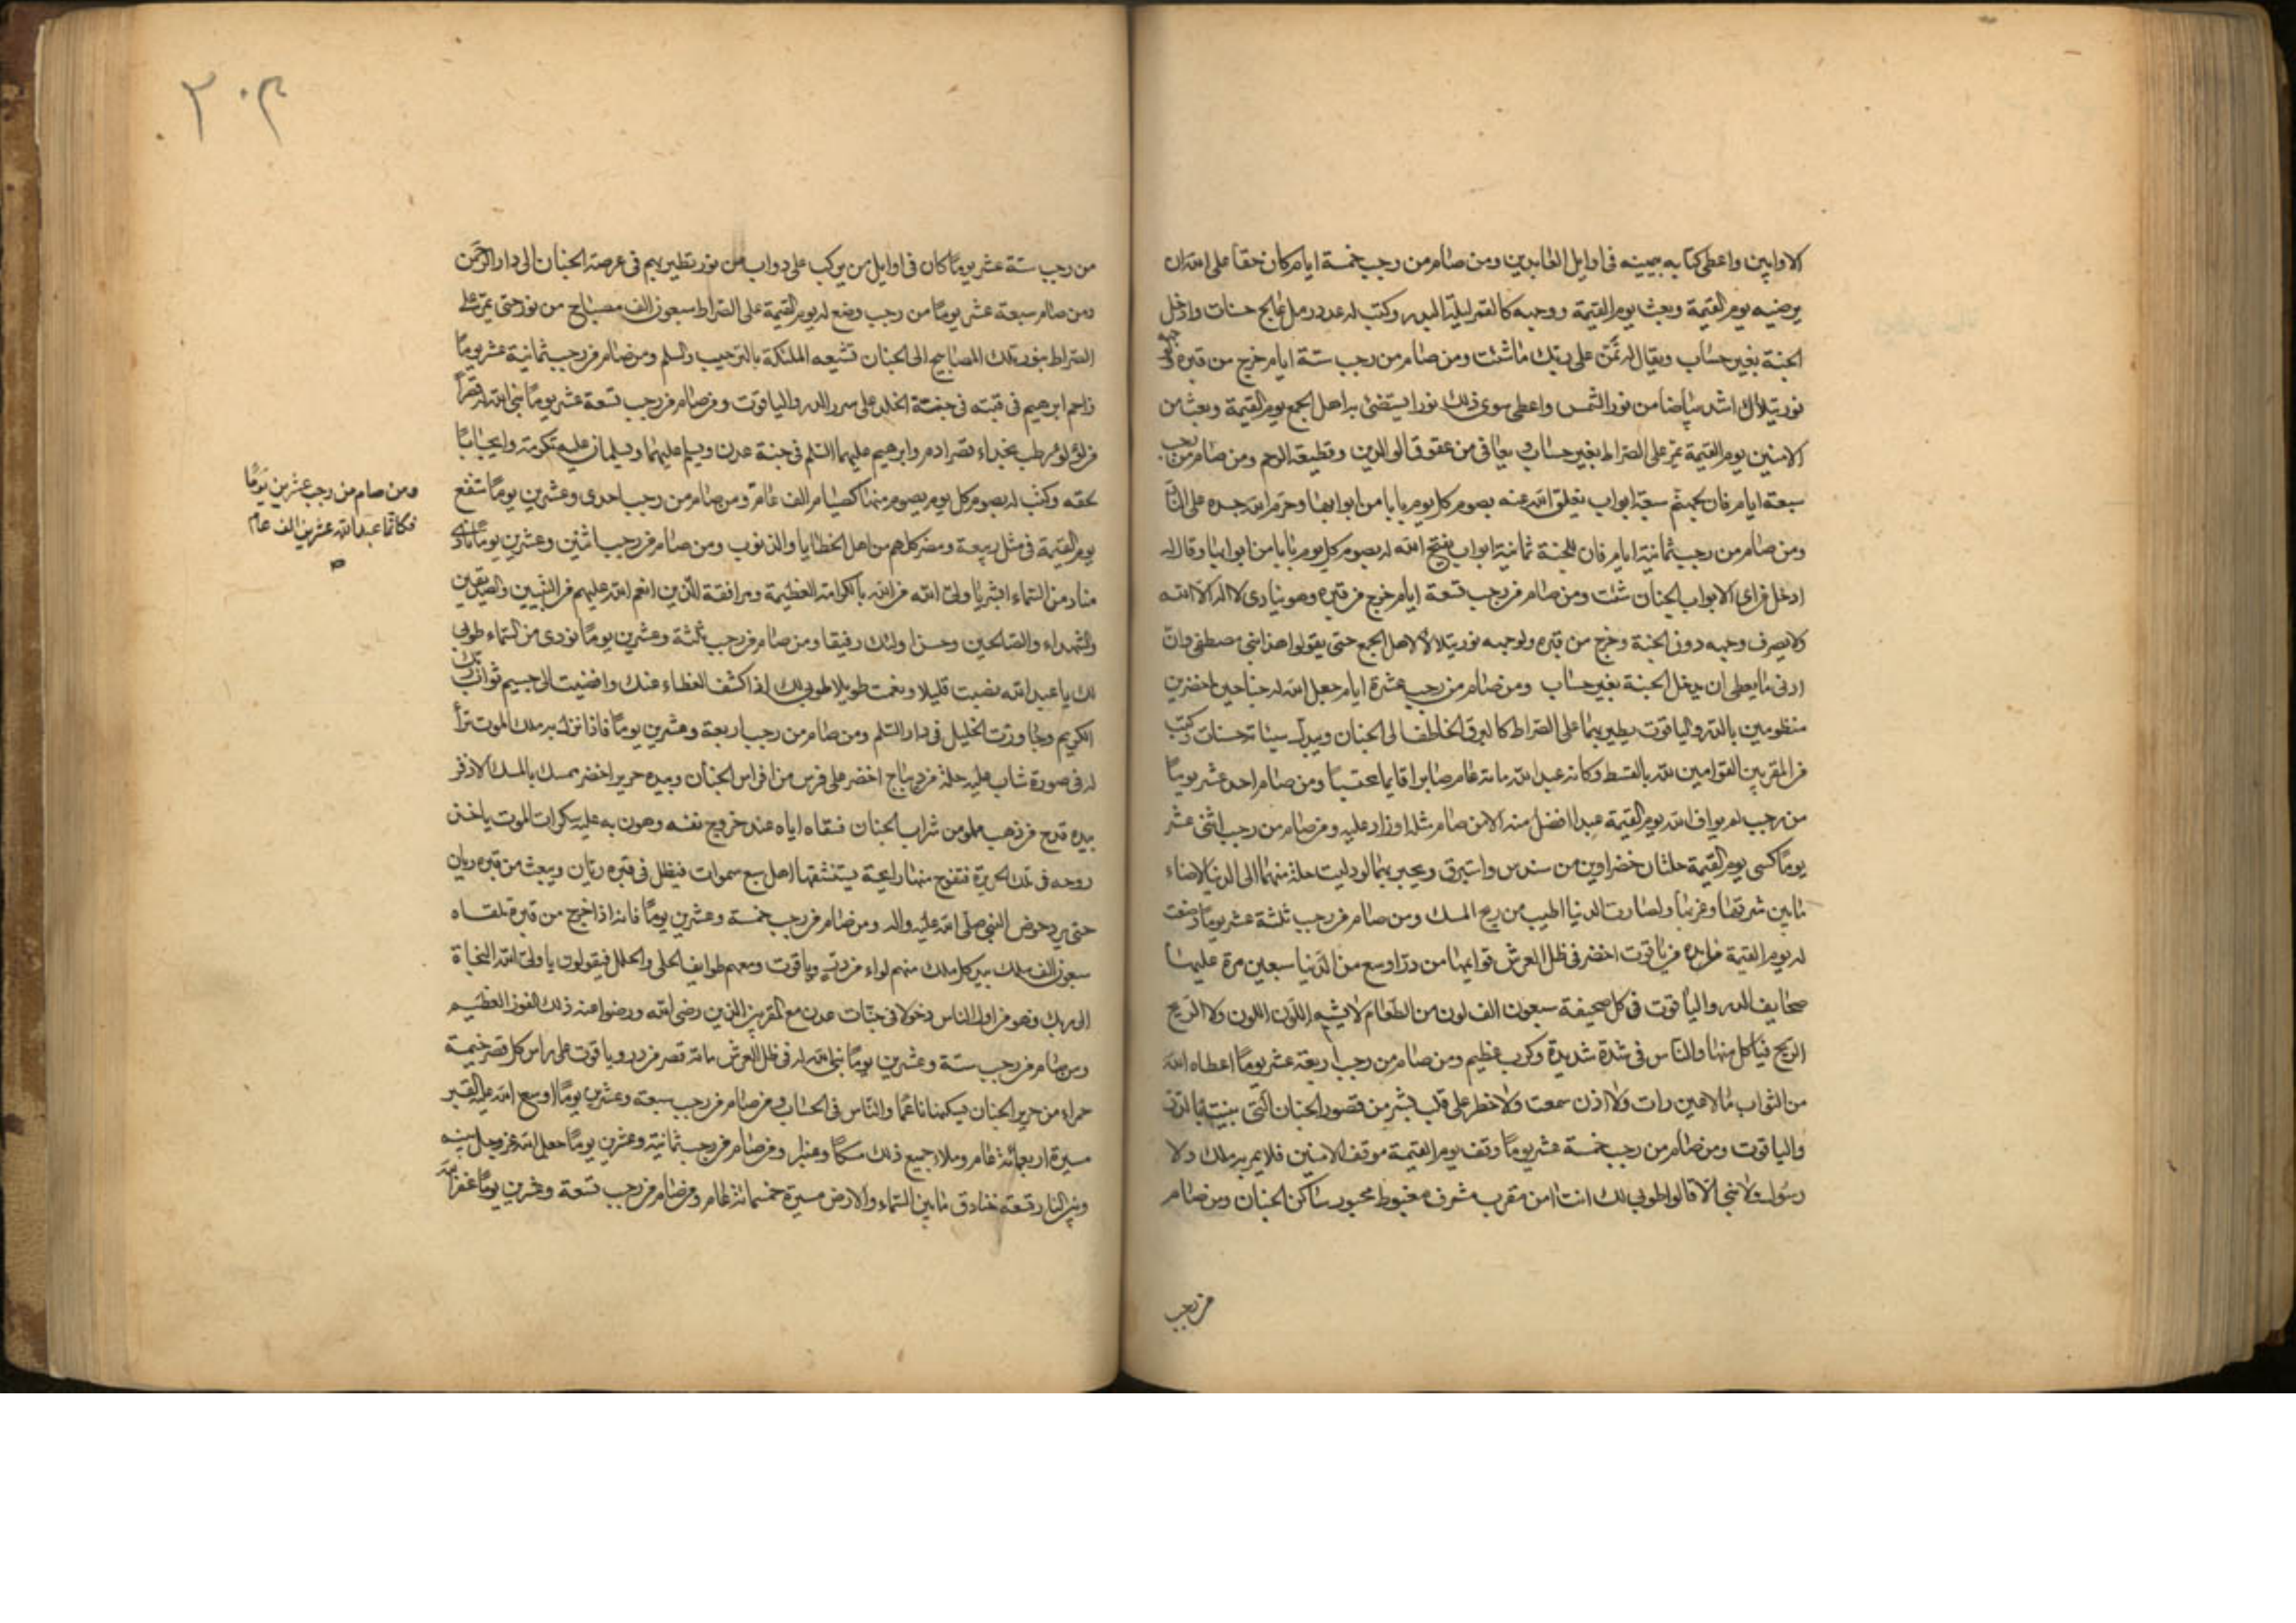 الاوابين واعطى كتابه بيمينه فى اوايل العابدين ومن صام من رجب خمسة ايام كان حقا على الله ان
يرضيه يوم القيمة وبعث يوم القيمة ووجهه كالقمر ليلة البدر وكتب له عدد رمل عالج حسنات وادخل
الجنة بغير حساب ويقال له تمنّ على ربك ما شئت ومن صام من رجب ستة ايام خرج من قبره ولوجهه
نور يتلالأ اشد بياضا من نور الشمس واعطى سوى ذلك نورا يستضئ به اهل الجمع يوم القيمة وبعث من
الامنين يوم القيمة يمر على الصراط بغير حساب ويعافى من عقوق الوالدين وقطيعة الرحم ومن صام من رجب
سبعة ايام فان لجهنم سبعة ابواب يغلق الله عنه بصوم كل يوم بابا من ابوابها وحرم الله جسده على النار
ومن صام من رجب ثمانية ايام فان للجنة ثمانية ابواب يفتح الله له بصوم كل يوم بابا من ابوابها وقال له
ادخل من اى الابواب الجنان شئت ومن صام من رجب تسعة ايام خرج من قبره وهو ينادى لا اله الا الله
لا يصرف وجهه دون الجنة وخرج من قبره ولوجهه نور يتلالأ لاهل الجمع حتى يقولوا هذا نبى مصطفى وانّ
ادنى ما يعطى ان يدخل الجنة بغير حساب ومن صام من رجب عشرة ايام جعل الله له جناحين اخضرين
منظومين بالدر والياقوت يطير بهما على الصراط كالبرق الخاطف الى الجنان ويبدل سيئاته حسنات وكتب
من المقربين القوامين لله بالقسط وكانه عبد الله مائة عام صابرا قايما محتسبا ومن صام احد عشر يوماً
من رجب لم يواف الله يوم القيمة عبدا افضل منه الا من صام مثله او زاد عليه ومن صام من رجب اثنى عشر
يوماً كسى يوم القيمة حلتان خضراوين من سندس واستبرق ويحبر بهما لو دليت حلة منهما الى الدنيا لاضاء
ما بين شرقها وغربها ولصارت الدنيا اطيب من ريح المسك ومن صام من رجب ثلثة عشر يوماً وضعت
له يوم القيمة مائدة من ياقوت اخضر فى ظل العرش قوايمها من درّ اوسع من الدنيا سبعين مرة عليها
صحايف الدر والياقوت فى كل صحيفة سبعون الف لون من الطعام لا يشبه اللون اللون ولا الريح
الريح فياكل منها والناس فى شدة شديدة وكرب عظيم ومن صام من رجب اربعة عشر يوماً اعطاه الله
من الثواب ما لا عين رات ولا اذن سمعت ولا خطر على قلب بشر من قصور الجنان التى بنيت بالدر
والياقوت ومن صام من رجب خمسة عشر يوماً وقف يوم القيمة موقف الامنين فلا يمر به ملك ولا
رسول ولا نبى الا قالوا طوبى لك انت امن مقرب مشرف مغبوط محبور ساكن الجنان ومن صام
من رجب
٣٠٢
من رجب ستة عشر يوماً كان فى اوايل من يركب على دواب من نور تطير بهم فى عرصة الجنان الى دار الرحمن
ومن صام سبعة عشر يوماً من رجب وضع له يوم القيمة على الصراط سبعون الف مصباح من نور حتى يمر على
الصراط بنور تلك المصابيح الى الجنان تشيعه الملئكة بالترحيب والسلم ومن صام من رجب ثمانية عشر يوماً
زاحم ابرهيم فى قبته فى جنة الخلد على سرر الدر والياقوت ومن صام من رجب تسعة عشر يوماً بنى الله له قصراً
من لؤلؤ رطب بحذاء قصر ادم وابرهيم عليهما السلم فى جنة عدن ويسلم عليهما ويسلمان عليه تكرمة وايجاباً
لحقه وكتب له بصوم كل يوم يصوم منها كصيام الف عام ومن صام من رجب احدى وعشرين يوماً شفع
يوم القيمة فى مثل ربيعة ومضر كلهم من اهل الخطايا والذنوب ومن صام من رجب اثنين وعشرين يوماً نادى
مناد من السماء ابشر يا ولى الله من الله بالكرامة العظيمة ومرافقة الذين انعم الله عليهم من النبيين والصديقين
والشهداء والصالحين وحسن اولئك رفيقا ومن صام من رجب ثلثة وعشرين يوماً نودى من السماء طوبى
لك يا عبد الله نصبت قليلا ونعمت طويلا طوبى لك اذا كشف الغطاء عنك وافضيت الى جسيم ثواب ربك
الكريم وجاورت الخليل فى دار السلم ومن صام من رجب اربعة وعشرين يوماً فاذا نزل به ملك الموت تراأ
له فى صورة شاب عليه حلة من ديباج اخضر على فرس من افراس الجنان وبيده حرير اخضر ممسك بالمسك الاذفر
بيده قدح من ذهب مملو من شراب الجنان فسقاه اياه عند خروج نفسه وهون به عليه سكرات الموت ياخذ
روحه فى تلك الحريرة فتفوح منها رايحة يستنشقها اهل سبع سموات فيظل فى قبره ريان ويبعث من قبره ريان
حتى يرد حوض النبى صلى الله عليه واله ومن صام من رجب خمسة وعشرين يوماً فانه اذا خرج من قبره تلقاه
سبعون الف ملك بيد كل ملك منهم لواء من در وياقوت ومعهم طرايف الحلى والحلل فيقولون يا ولى الله النجاة
الى ربك وهو من اول الناس دخولا فى جنات عدن مع المقربين الذين رضى الله ورضوا عنه ذلك الفوز العظيم
ومن صام من رجب ستة وعشرين يوماً بنى الله له فى ظل العرش مائة قصر من در وياقوت على راس كل قصر خيمة
حمراء من حرير الجنان يسكنها ناعمًا والناس فى الحساب ومن صام من رجب سبعة وعشرين يوماً اوسع الله عليه القبر
مسيرة اربعمائة عام وملاء جميع ذلك مسكاً وعنبرا ومن صام من رجب ثمانية وعشرين يوماً جعل الله عز وجل بينه
وبين النار تسعة خنادق ما بين السماء والارض مسيرة خمسمائة عام ومن صام من رجب تسعة وعشرين يوماً غفر الله
ومن صام من رجب عشرين يوماً
فكانما عبد الله عشرين الف عام